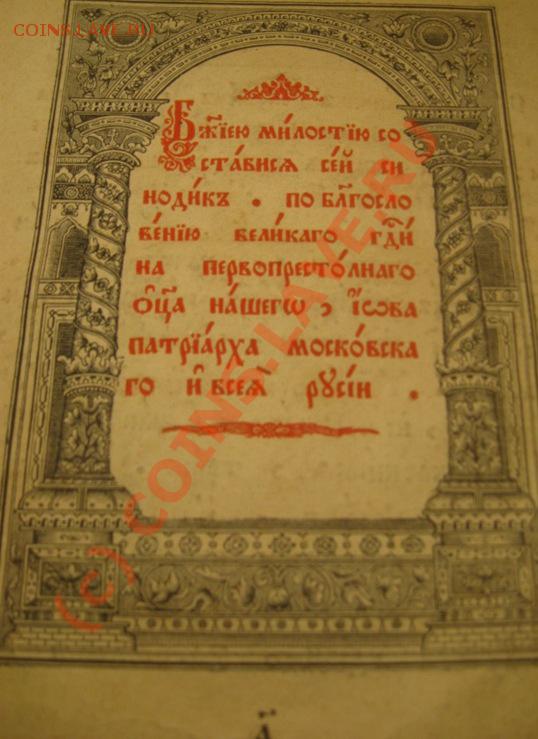 COINS.LAVE.RU
Бж҃їею ми́лостїю со
ста́висѧ се́й си
ноди́къ . по бл҃госло
ве́нїю вели́каго гд҃и
на первопресто́лнаго
о҆ц҃а на́шегѡ , і҆́ѡва
патрїа́рха моско́вска
го и҆ всеѧ̀ рꙋсі́и .
(c) COINS.LAVE.RU
а҃